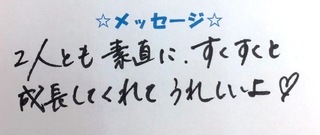 ☆メッセージ☆
2人とも素直に、すくすくと
成長してくれてうれしいよ♡